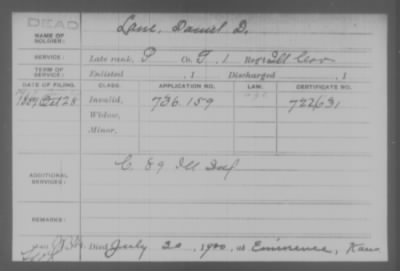 DEAD
NAME OF SOLDIER: Lane, Daniel D.
SERVICE: Late rank, P Co. G, 1 Reg't Ill
TERM OF SERVICE: Enlisted , 1 Discharged , 1
DATE OF FILING. CLASS. APPLICATION NO. LAW. CERTIFICATE NO.
1889 Oct 28 Invalid, 736.159 722631
Widow,
Minor,
ADDITIONAL SERVICES: C. 89 Ill Inf
REMARKS:
Died July 20, 1900, at Eminence, Kans